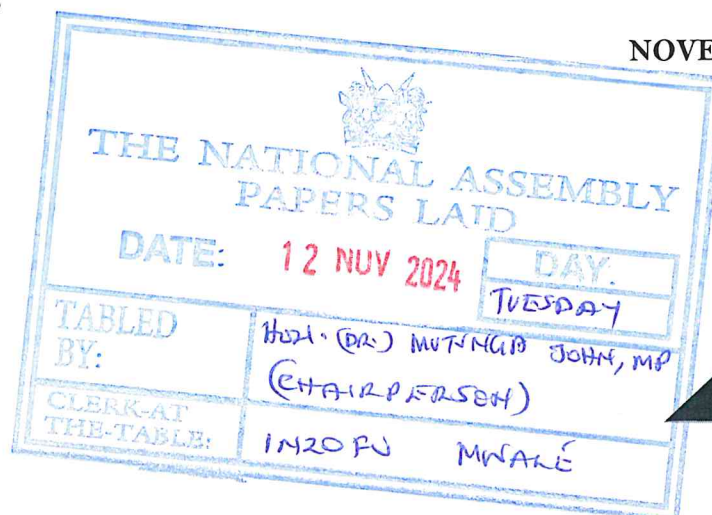 NOVE
THE NATIONAL ASSEMBLY
PAPERS LAID
DATE: 12 NOV 2024 DAY:
TUESDAY
TABLED
BY:
HON. (DR.) MUTUNGA JOHN, MP
(CHAIRPERSON)
CLERK-AT
THE-TABLE:
INZOFU MWALE